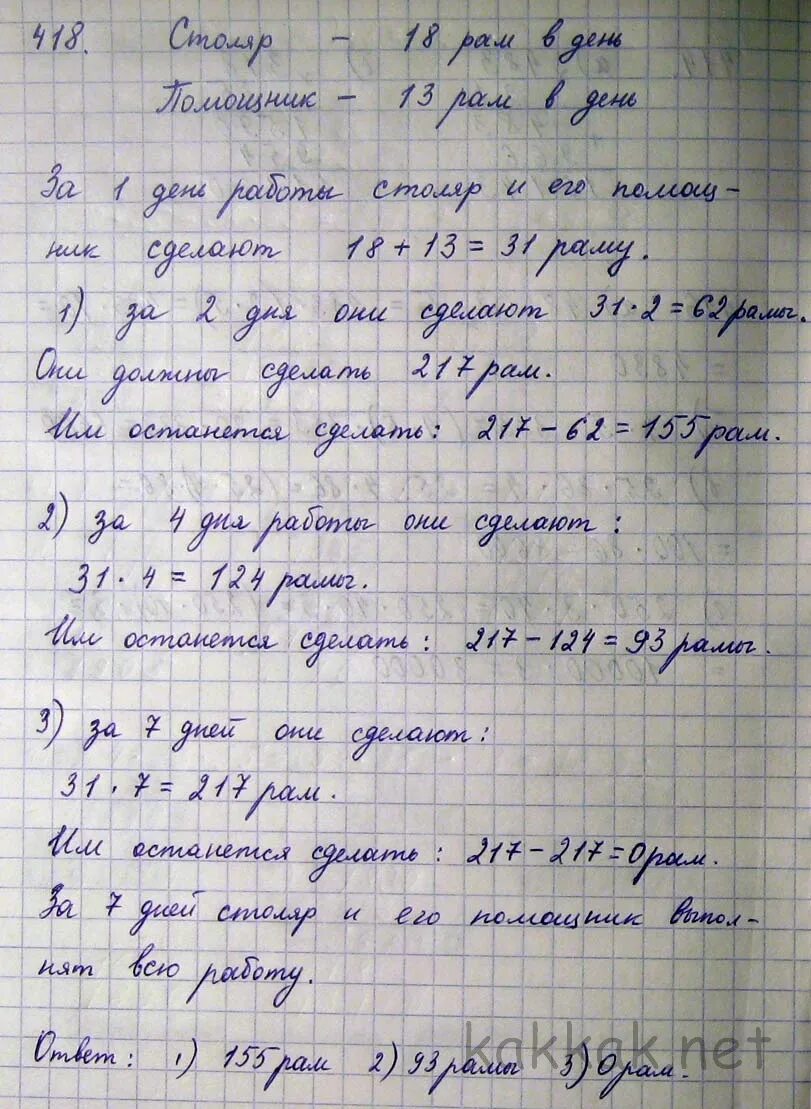 418. Столяр – 18 рам в день
Помощник – 13 рам в день
За 1 день работы столяр и его помощ-
ник сделают 18 + 13 = 31 раму.
1) за 2 дня они сделают 31 · 2 = 62 рамы.
Они должны сделать 217 рам.
Им останется сделать: 217 – 62 = 155 рам.
2) за 4 дня работы они сделают:
31 · 4 = 124 рамы.
Им останется сделать: 217 – 124 = 93 рамы.
3) за 7 дней они сделают:
31 · 7 = 217 рам.
Им останется сделать: 217 – 217 = 0 рам.
За 7 дней столяр и его помощник выпол-
нят всю работу.
Ответ: 1) 155 рам 2) 93 рамы 3) 0 рам.
kakkak.net